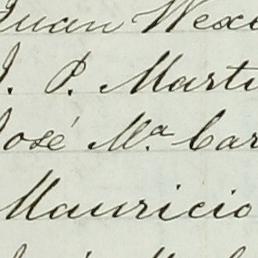 Juan Wexe
J. P. Marti
José Mª Car
Mauricio